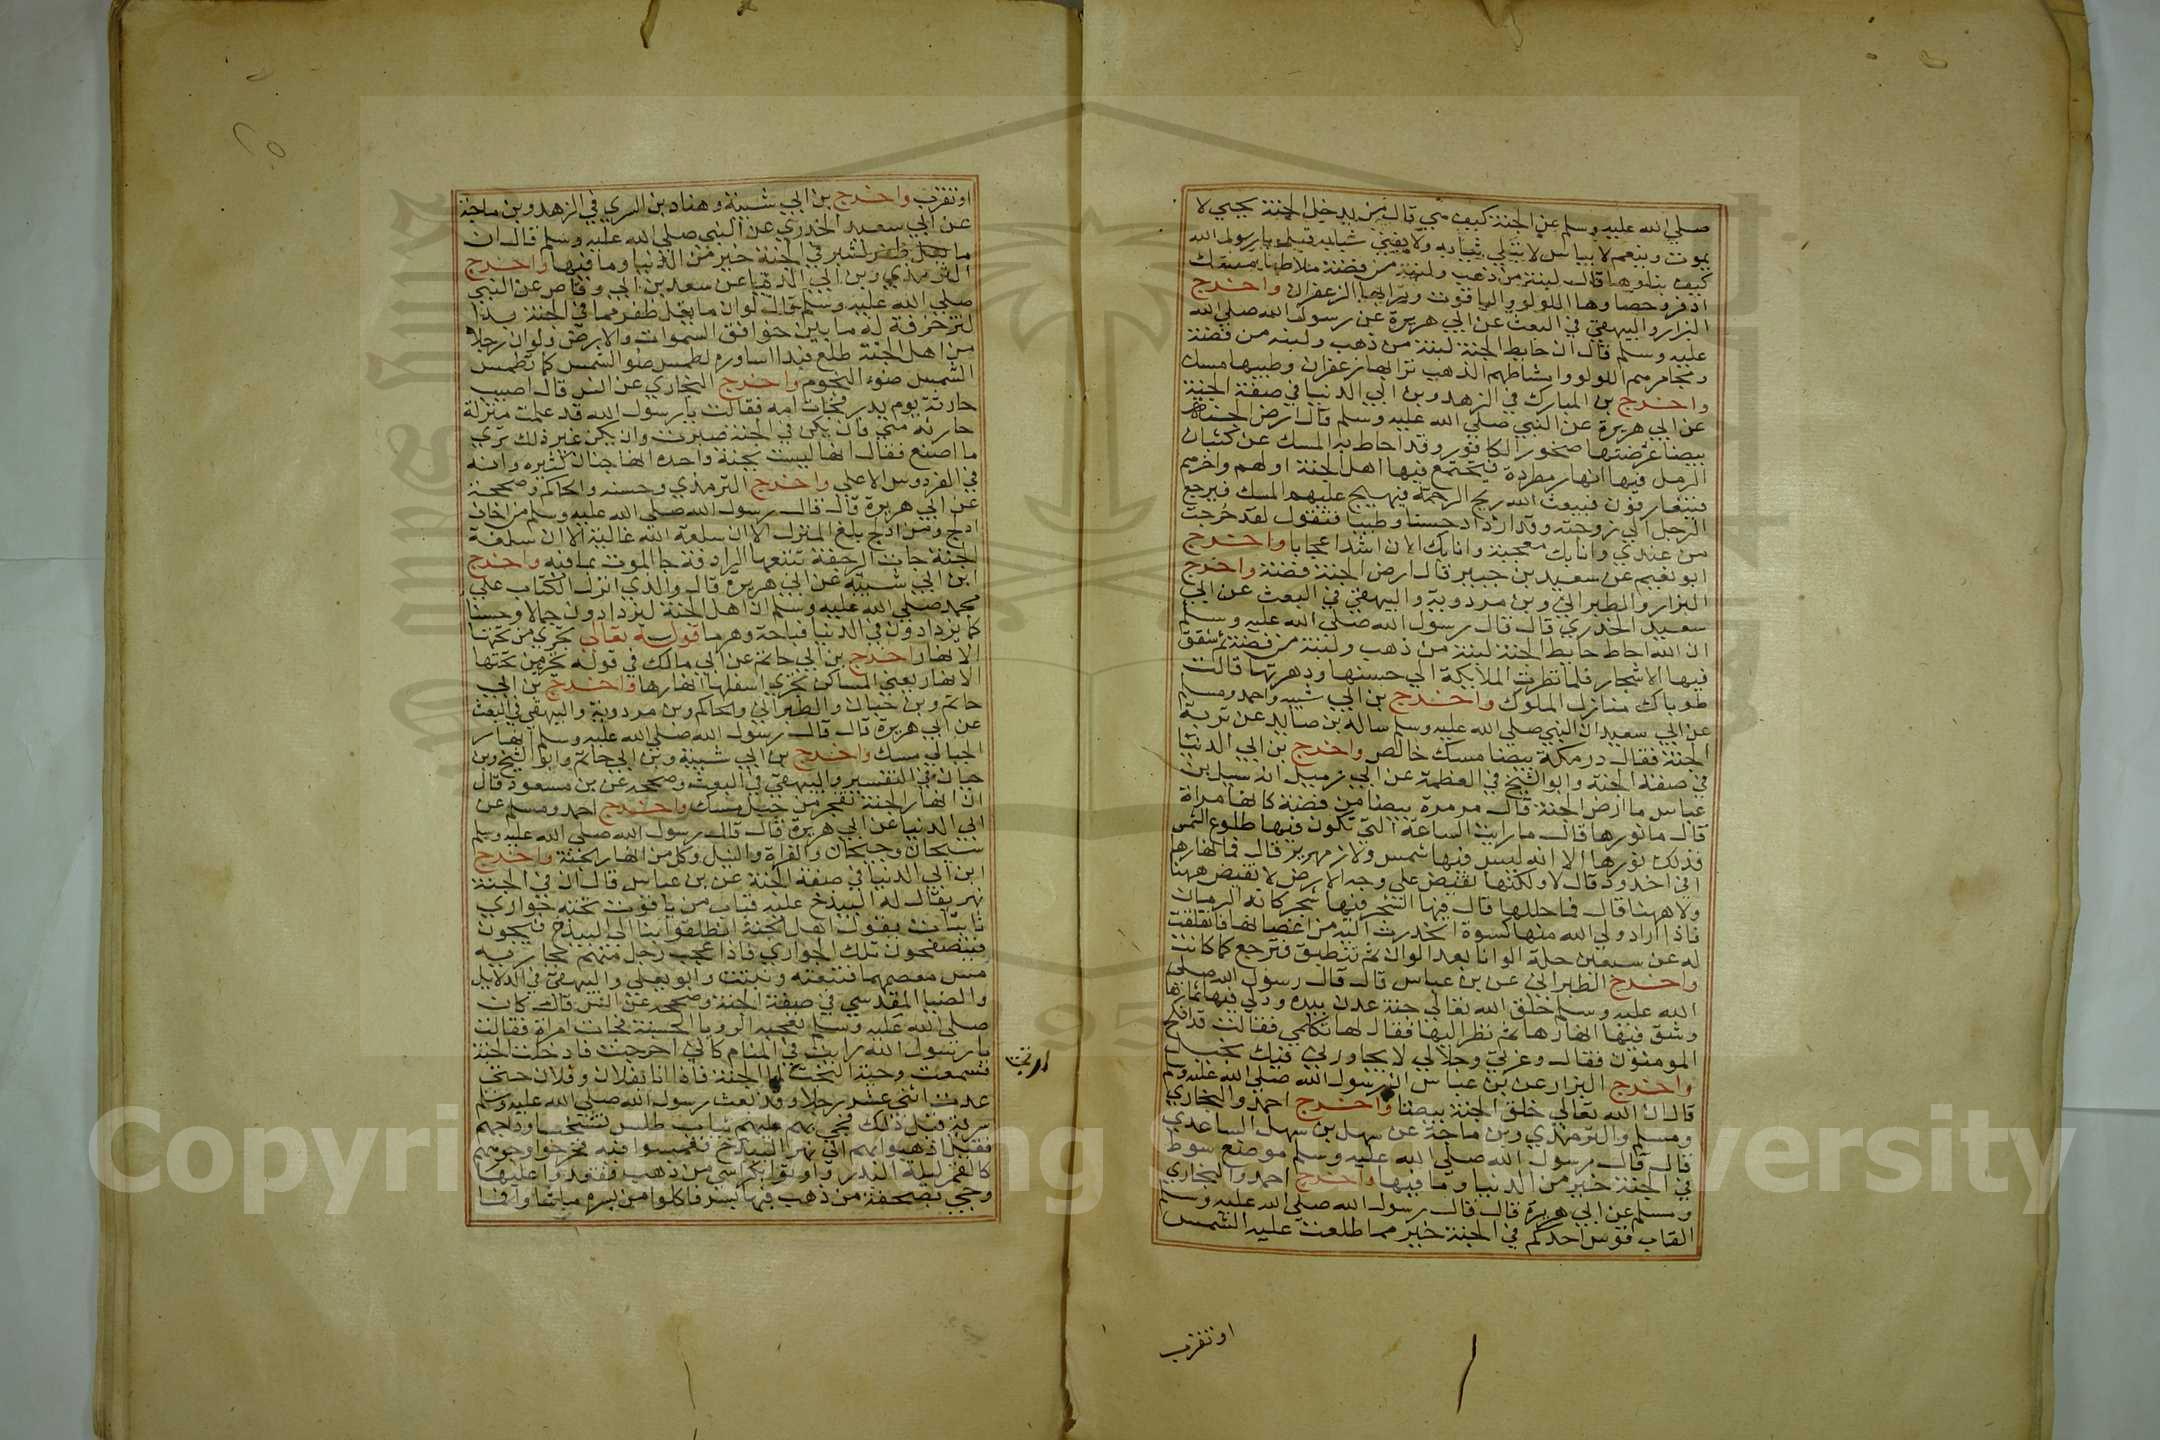 صلي الله عليه وسلم عن الجنة كيف هي قال من يدخل الجنة يحيي لا
يموت وينعم لا يباس لا تبلي ثيابه ولا يفني شبابه قيل يا رسول الله
كيف بناوها قال لبنة من ذهب ولبنة من فضة ملاطها مسك
اذفر وحصاوها اللولو والياقوت وترابها الزعفران واخرج
البزار والبيهقي في البعث عن ابي هريرة عن رسول الله صلي الله
عليه وسلم قال ان حايط الجنة لبنة من ذهب ولبنة من فضة
ومجامرهم اللولو وامشاطهم الذهب ترابها زعفران وطيبها مسك
واخرج بن المبارك في الزهد وبن ابي الدنيا في صفة الجنة
عن ابي هريرة عن النبي صلي الله عليه وسلم قال ارض الجنة
بيضا عرضتها صخور الكافور وقد احاط به المسك عن كثبان
الرمل فيها انهار مطردة فيجتمع فيها اهل الجنة اولهم واخرهم
فيتعارفون فيبعث الله ريح الرحمة فيهيج عليهم المسك فيرجع
الرجل الي زوجته وقد ازداد حسنا وطيبا فتقول لقد خرجت
من عندي وانا بك معجبة وانا بك الان اشد اعجابا واخرج
ابو نعيم عن سعيد بن جبير قال ارض الجنة فضة واخرج
البزار والطبراني وبن مردوية والبيهقي في البعث عن ابي
سعيد الخدري قال قال رسول الله صلي الله عليه وسلم
ان الله احاط حايط الجنة لبنة من ذهب ولبنة من فضة ثم شقق
فيها الاشجار فلما نظرت الملايكة الي حسنها وزهرتها قالت
طوباك منازل الملوك واخرج بن ابي شيبه واحمد ومسلم
عن ابي سعيد ان النبي صلي الله عليه وسلم ساله بن صايد عن تربة
الجنة فقال درمكة بيضا مسك خالص واخرج بن ابي الدنيا
في صفة الجنة وابو الشيخ في العظمة عن ابي زميل انه سيل بن
عباس ما ارض الجنة قال مرمرة بيضا من فضة كانها مراة
قال ما نورها قال ما رايت الساعة التي تكون فيها طلوع الشمس
فذلك نورها الا انه ليس فيها شمس ولا زمهرير قال فما انهارها
افي اخدود قال لا ولكنها تفيض علي وجه الارض لا تفيض ههنا
ولا ههنا قال فما حللها قال فيها الشجر فيها شجر كانه الرمان
فاذا اراد ولي الله منها كسوة انحدرت اليه من اغصانها فانفلقت
له عن سبعين حلة الوانا بعد الوان ثم تنطبق فترجع كما كانت
واخرج الطبراني عن بن عباس قال قال رسول الله صلي
الله عليه وسلم خلق الله تعالي جنة عدن بيده ودلي فيها ثمارها
وشق فيها انهارها ثم نظر اليها فقال لها تكلمي فقالت قد افلح
المومنون فقال وعزتي وجلالي لا يجاورني فيك بخيل
واخرج البزار عن بن عباس ان رسول الله صلي الله عليه وسلم
قال ان الله تعالي خلق الجنة بيضا واخرج احمد والبخاري
ومسلم والترمذي وبن ماجة عن سهل بن سهل الساعدي
قال قال رسول الله صلي الله عليه وسلم موضع سوط
في الجنة خير من الدنيا وما فيها واخرج احمد والبخاري
ومسلم عن ابي هريرة قال قال رسول الله صلي الله عليه وسلم
القاب قوس احدكم في الجنة خير مما طلعت عليه الشمس
او تغرب
او تغرب واخرج بن ابي شيبة وهناد بن السري في الزهد وبن ماجة
عن ابي سعيد الخدري عن النبي صلي الله عليه وسلم قال ان
لشبر في الجنة خير من الدنيا وما فيها واخرج
الترمذي وبن ابي الدنيا عن سعد بن ابي وقاص عن النبي
صلي الله عليه وسلم قال لو ان ما يقل ظفر مما في الجنة بدا
لتزخرفة له ما بين خوافق السموات والارض ولو ان رجلا
من اهل الجنة طلع فبدا اساوره لطمس ضو الشمس كما تطمس
الشمس ضوء النجوم واخرج البخاري عن انس قال اصيب
حارثة يوم بدر فجات امه فقالت يا رسول الله قد علمت منزلة
حارثه مني فان يكن في الجنة صبرت وان يكن غير ذلك تري
ما اصنع فقال انها ليست بجنة واحده انها جنان كثيره وانه
في الفردوس الاعلي واخرج الترمذي وحسنه والحاكم وصححة
عن ابي هريرة قال قال رسول الله صلي الله عليه وسلم من خاف
ادلج ومن ادلج بلغ المنزل الا ان سلعة الله غالية الا ان سلعة
الجنة جات الرجفة تتبعها الرادفة جا الموت بما فيه واخرج
ابن ابي شيبة عن ابي هريرة قال والذي انزل الكتاب علي
محمد صلي الله عليه وسلم ان اهل الجنة ليزدادون جمالا وحسنا
كما يزدادون في الدنيا قباحة وهرما قوله تعالي تجري من تحتها
الانهار اخرج بن ابي حاتم عن ابي مالك في قوله تجري من تحتها
الانهار يعني المساكن تجري اسفلها انهارها واخرج بن ابي
حاتم وبن حبان والطبراني والحاكم وبن مردوية والبيهقي في البعث
عن ابي هريرة قال قال رسول الله صلي الله عليه وسلم انهار
الجبالي مسك واخرج بن ابي شيبة وبن ابي حاتم وابو الشيخ وبن
حبان في التفسير والبيهقي في البعث وصححه عن بن مسعود قال
ان انهار الجنة تفجر من جبل مسك واخرج احمد ومسلم عن
ابي الدنيا عن ابي هريرة قال قال رسول الله صلي الله عليه وسلم
سيحان وجيحان والفراة والنيل وكل من انهار الجنة واخرج
ابن ابي الدنيا في صفة الجنة عن بن عباس قال ان في الجنة
نهر يقال له البيدخ عليه قباب من ياقوت تحته جواري
نابتات يقول اهل الجنة انطلقوا بنا الي البيدخ فيجون
فيتصفحون تلك الجواري فاذا اعجب رجل منهم بجارية
مس معصمها فتتبعته ونبتت وابو يعلي والبيهقي في الدلايل
والضيا المقدسي في صفة الجنة وصححه عن انس قال كان
صلي الله عليه وسلم تعجبه الرويا الحسنة فجات امراة فقالت
يا رسول الله رايت في المنام كاني اخرجت فادخلت الجنة
فسمعت وجبة الجنة فاذا انا بفلان وفلان حتي
عدت اثني عشر رجلا وقد بعث رسول الله صلي الله عليه وسلم
سرية قبل ذلك فجي بهم عليهم ثياب طلس تشخب اوداجهم
فقيل اذهبوا بهم الي نهر البيدخ فغمسوا فيه فخرخوا وجوههم
كالقمر ليلة البدر واوتوا بكراسي من ذهب فقعدوا عليها
وجي بصحفة من ذهب فيها بسر فاكلوا من بسره ما شاوا فما
Copyri ng versity